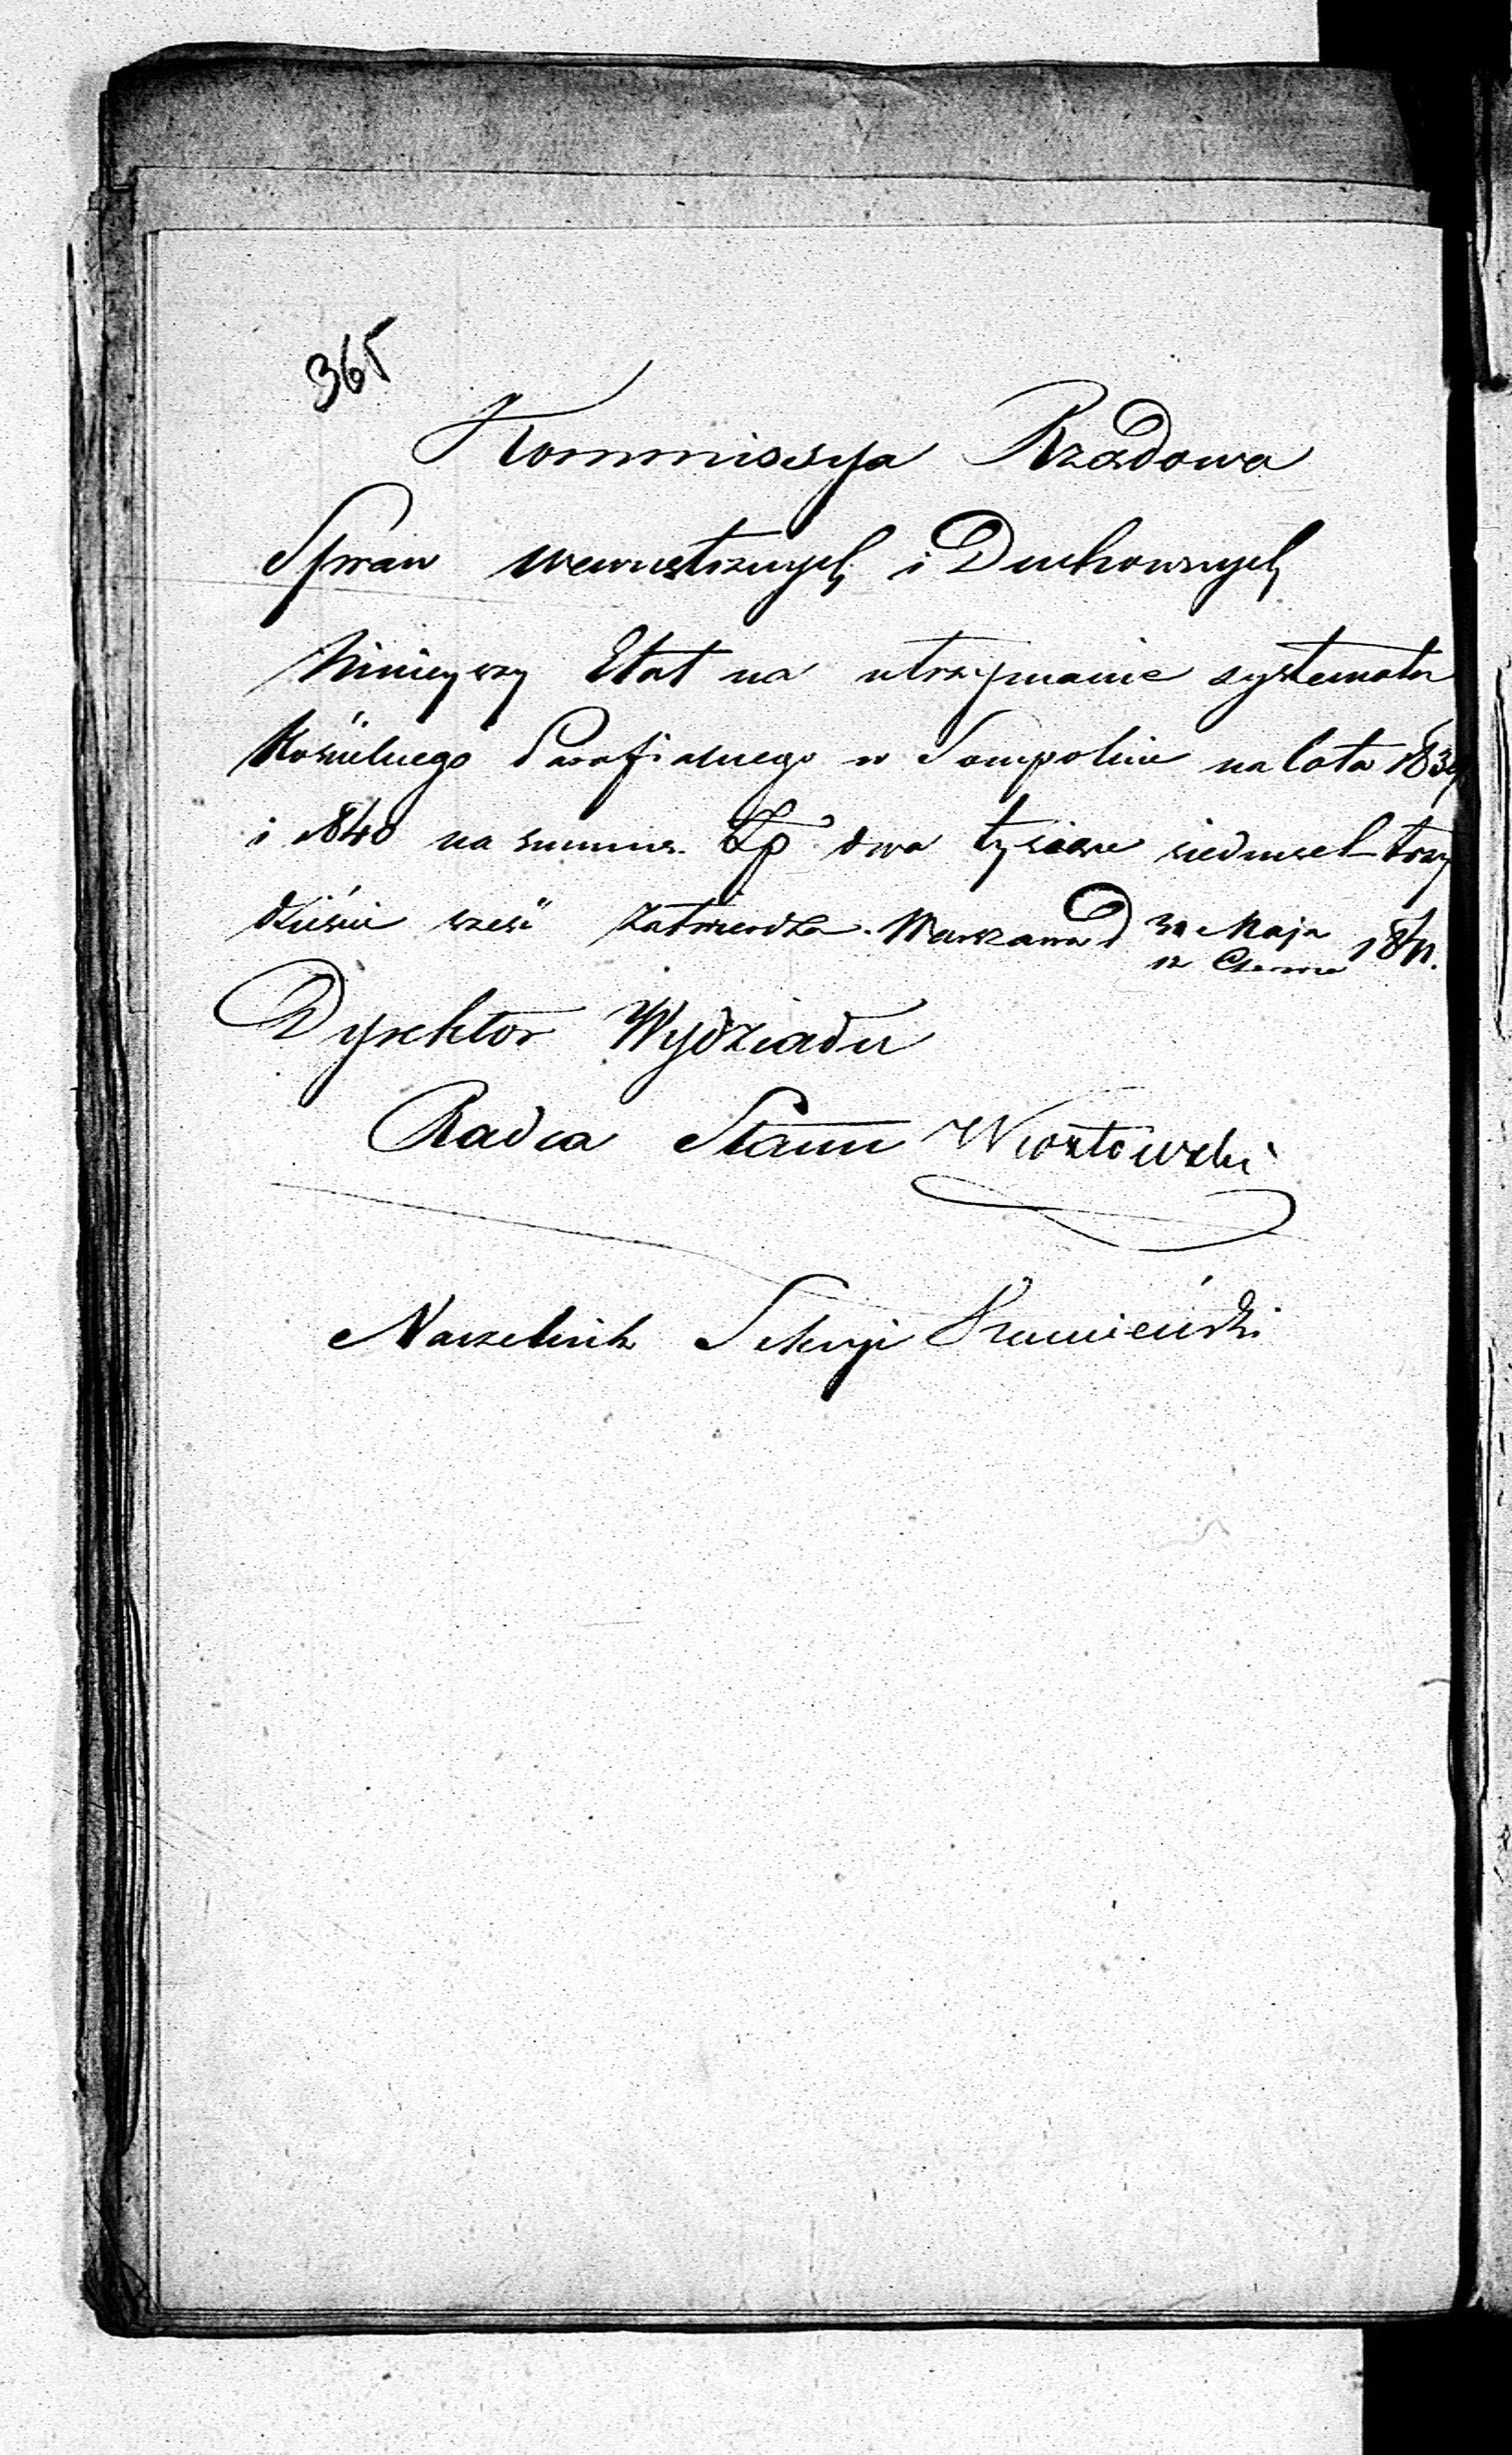 365
Kommissya Rządowa
Spraw wewnętrznych i Duchownych
Ninieyszy Etat na utrzymanie systematu
Kościelnego Parafialnego w Sompolnie na lata 1839
i 1840 na summę Złp dwa tysiące siedmset trzy
dzieści sześć zatwierdza. Warszawa d 31 Maja
12 Czerwca 1841.
Dyrektor Wydziału
Radca Stanu
Naczelnik Sekcyi